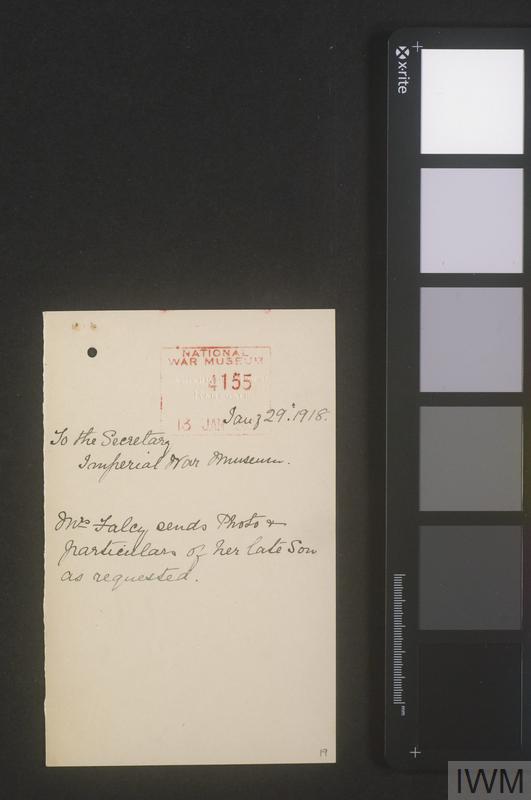 x·rite
NATIONAL
WAR MUSEUM
4155
Jany 29th 1918.
To the Secretary
Imperial War Museum.
Mrs Falcy sends Photo &
particulars of her late Son
as requested.
19
mm
IWM